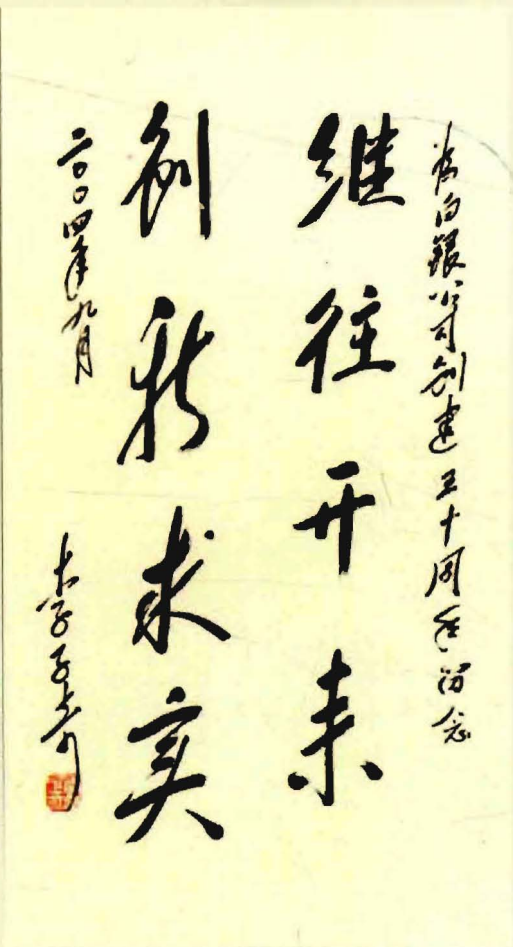 为白银公司创建五十周年留念
继往开来
创新求实
二〇〇四年九月
李子奇